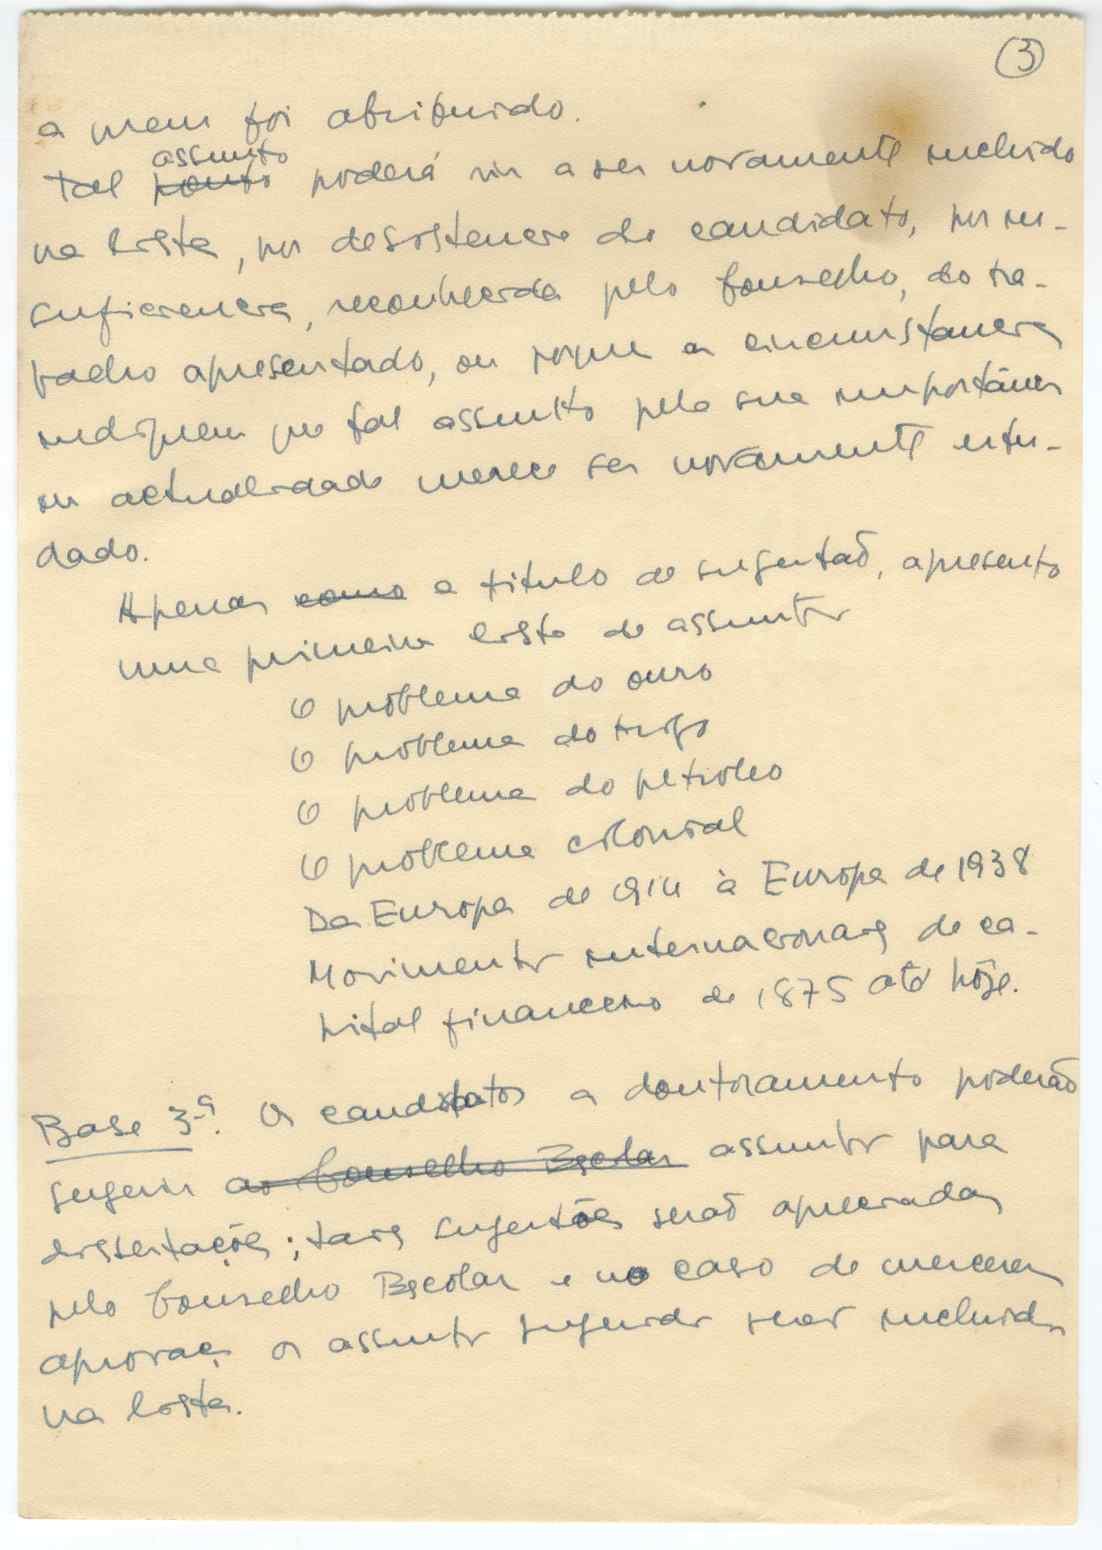 3
a quem foi atribuido.
assunto
Tal ponto poderá vir a ser novamente incluido
na lista, por desistencia do candidato, por in-
suficiencia, reconhecida pelo Conselho, do tra-
balho apresentado, ou porque a circunstancia
indiquem que tal assunto pela sua importância
ou actualidade merece ser novamente estu-
dado.
Apenas como a titulo de sugestaõ, apresento
uma primeira lista de assuntos
O problema do ouro
O problema do trigo
O problema do petroleo
O problema colonial
Da Europa de 1914 à Europa de 1938
Movimentos internacionais de ca-
pital financeiro de 1875 até hôje.
Base 3.ª. Os candidatos a doutoramento poderaõ
sugerir ao Conselho Escolar assuntos para
dissertações; tais sugestões seraõ apreciadas
pelo Conselho Escolar e no caso de merecerem
aprovaçaõ os assuntos sugeridos seraõ incluidos
na lista.